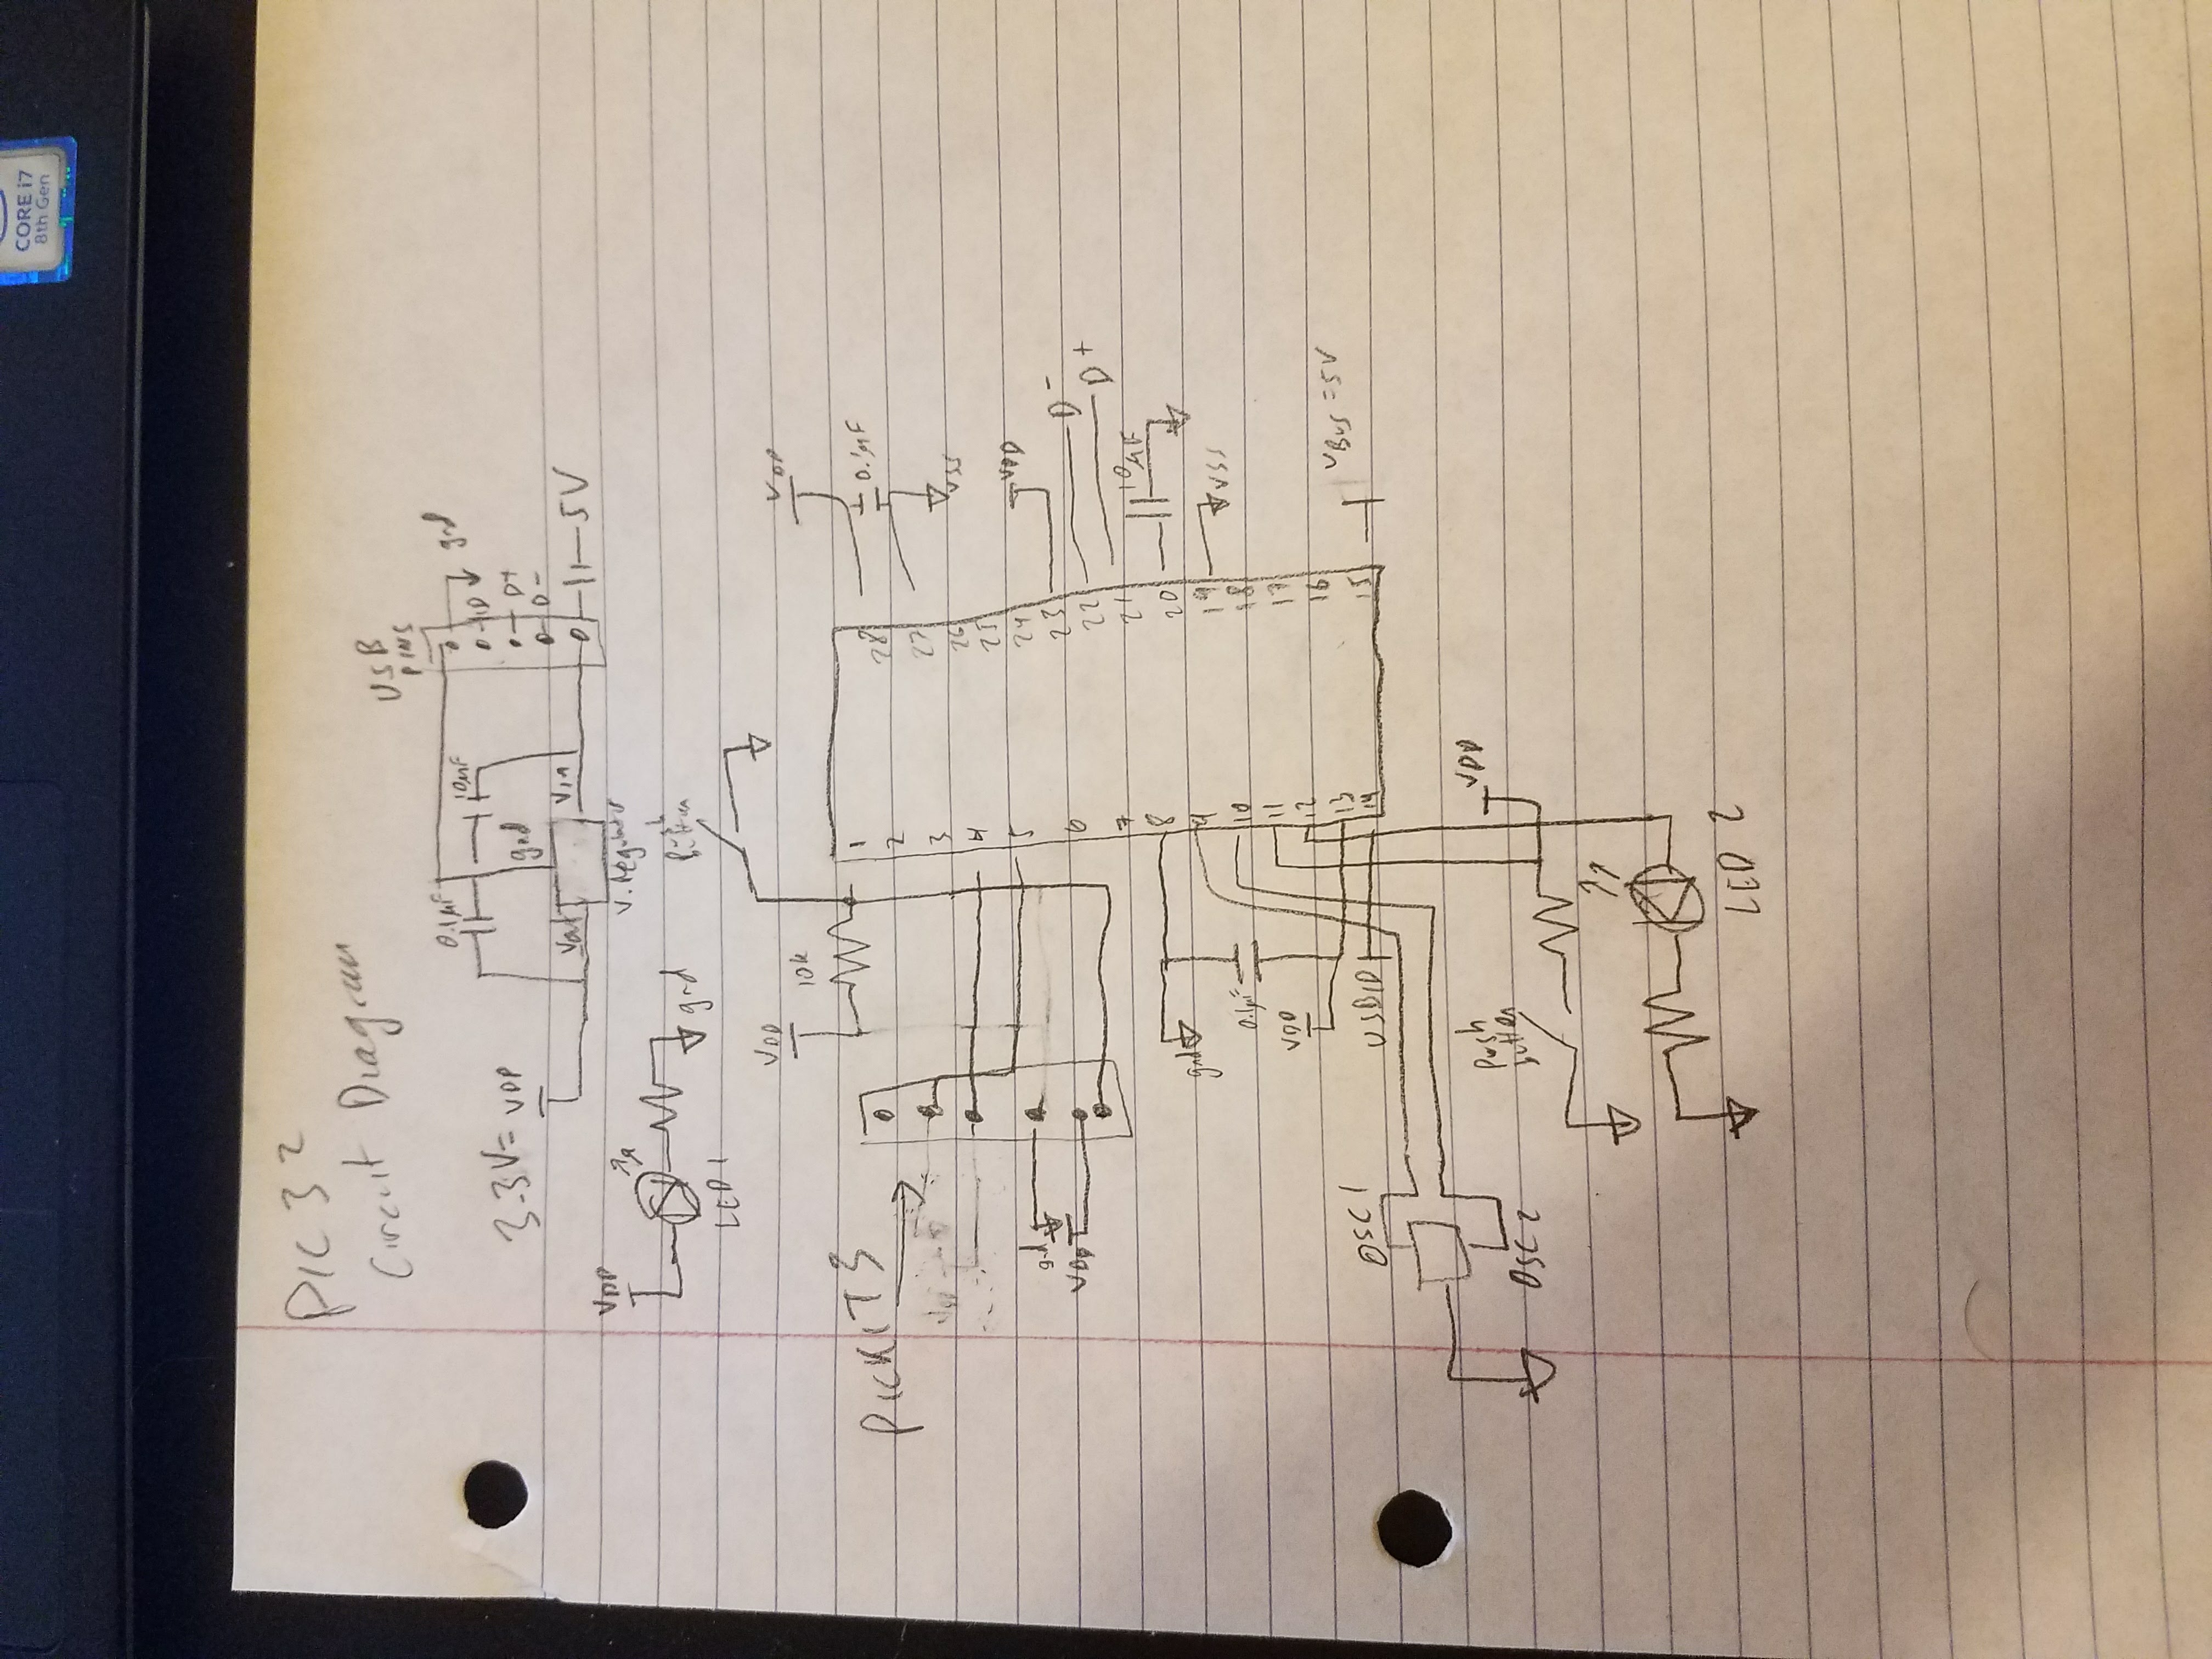 CORE i7
8th Gen
PIC 32
Circuit Diagram
USB
PINS
gnd
0.1µF
10µF
ID
3.3V = VDD
gnd
D+
D-
Vout
Vin
5V
V. Regulator
VDD
LED 1
gnd
Push
button
VDD
10k
VDD
0.1µF
VSS
PICKIT 3
gnd
VDD
1
2
3
4
5
6
7
8
9
10
11
12
13
14
28
27
26
25
24
23
22
21
20
19
18
17
16
15
VDD
D-
D+
10µF
VSS
VBUS = 5V
gnd
0.1µF
VDD
USBID
OSC 1
OSC 2
Push
button
VDD
LED 2